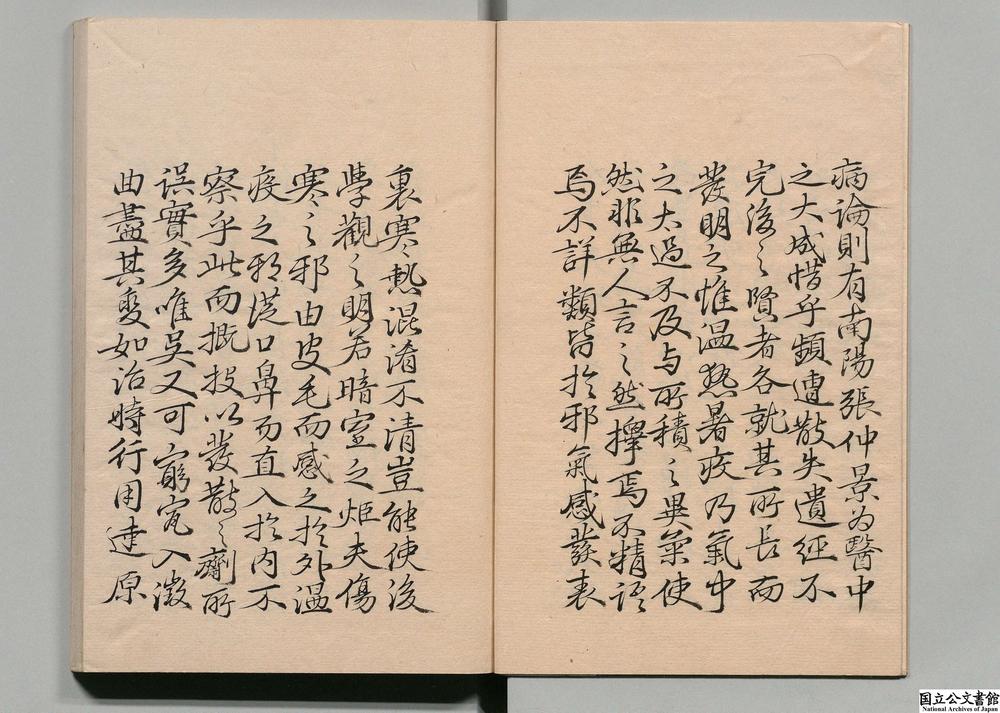 病論則有南陽張仲景為醫中
之大成惜乎頻遭散失遺經不
完後之賢者各就其所長而
發明之惟温熱暑疫乃氣中
之太過不及与所積之異氣使
然非無人言之然擇焉不精語
焉不詳類皆於邪氣感發表
裏寒熱混淆不清豈能使後
學觀之明若暗室之炬夫傷
寒之邪由皮毛而感之於外温
疫之邪從口鼻而直入於内不
察乎此而概投以發散之劑所
誤實多唯吳又可窮究入微
曲盡其変如治時行用達原
国立公文書館
National Archives of Japan